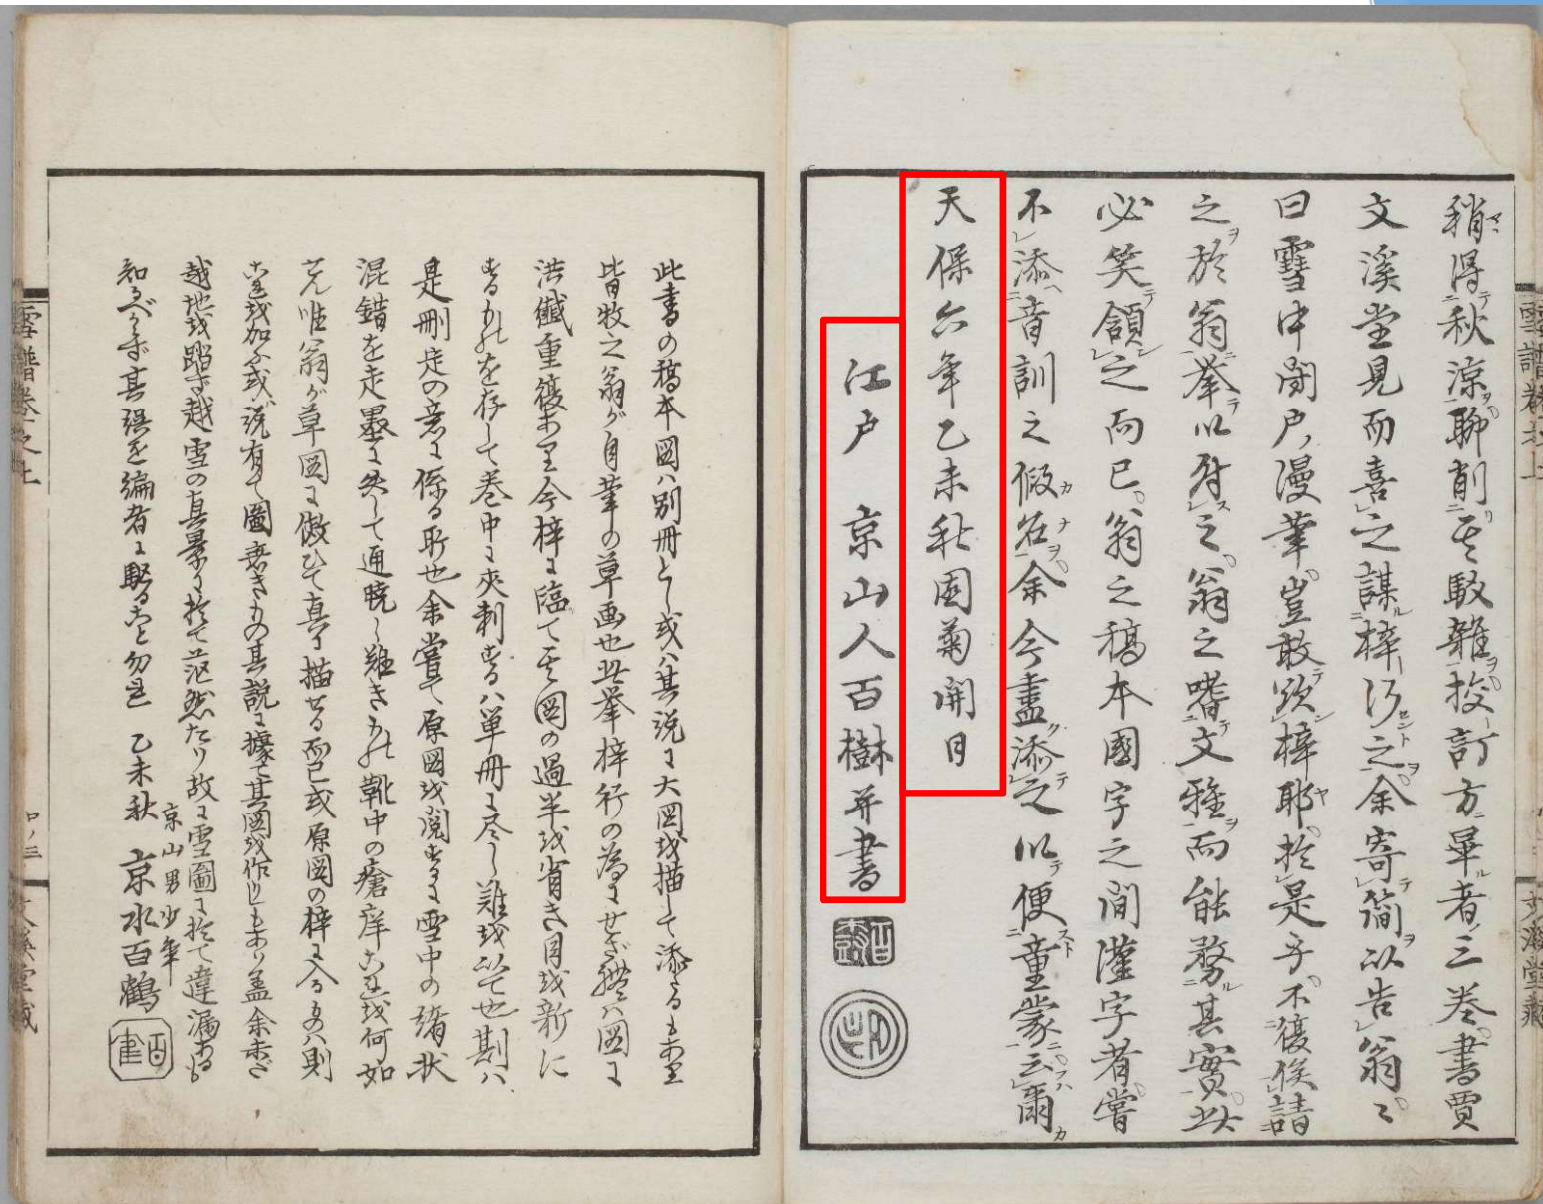 稍得秋涼聊削其駁雜挍訂方畢者三卷書賈
文溪堂見而喜之謀梓行之余寄簡以告翁〻
曰雪中閉戸漫筆豈敢災梓耶於是乎不復俟請
之於翁挙以付之翁之嗜文雅而能務其實此
必笑領之而已翁之稿本國字之間漢字者嘗
不添音訓之假名余今盡添之以便童蒙云爾
天保六年乙未秋園菊開日
江戸 京山人百樹并書
此書の稿本図ハ別冊とし或ハ其説に大図を描て添たるもあり
皆牧之翁が自筆の草画也此挙梓行の為にせざれバ図に
洪繊重複あり今梓に臨て其図の過半を省き目を新に
するものを存して巻中に夾刺するハ単冊に尽し難を以て也斯ハ
是刪定の意に係る所也余嘗て原図を閲するに雪中の諸状
混錯を走墨に失して通暁し難きもの靴中の瘡痒これを何如
せん唯翁が草図に傲ひて真に描せる而已或原図の梓に入るものハ則
これを加ふ或ハ説有て圖無きもの其説に據て其図を作りしもあり蓋余未だ
越地を踏ず越雪の真景に於て茫然たり故に雪圖に於て違漏あるも
知るべからず其誤を編者に駁ること勿is 乙未秋
京山男少年
京水百鶴
雪譜巻之上
文溪堂蔵